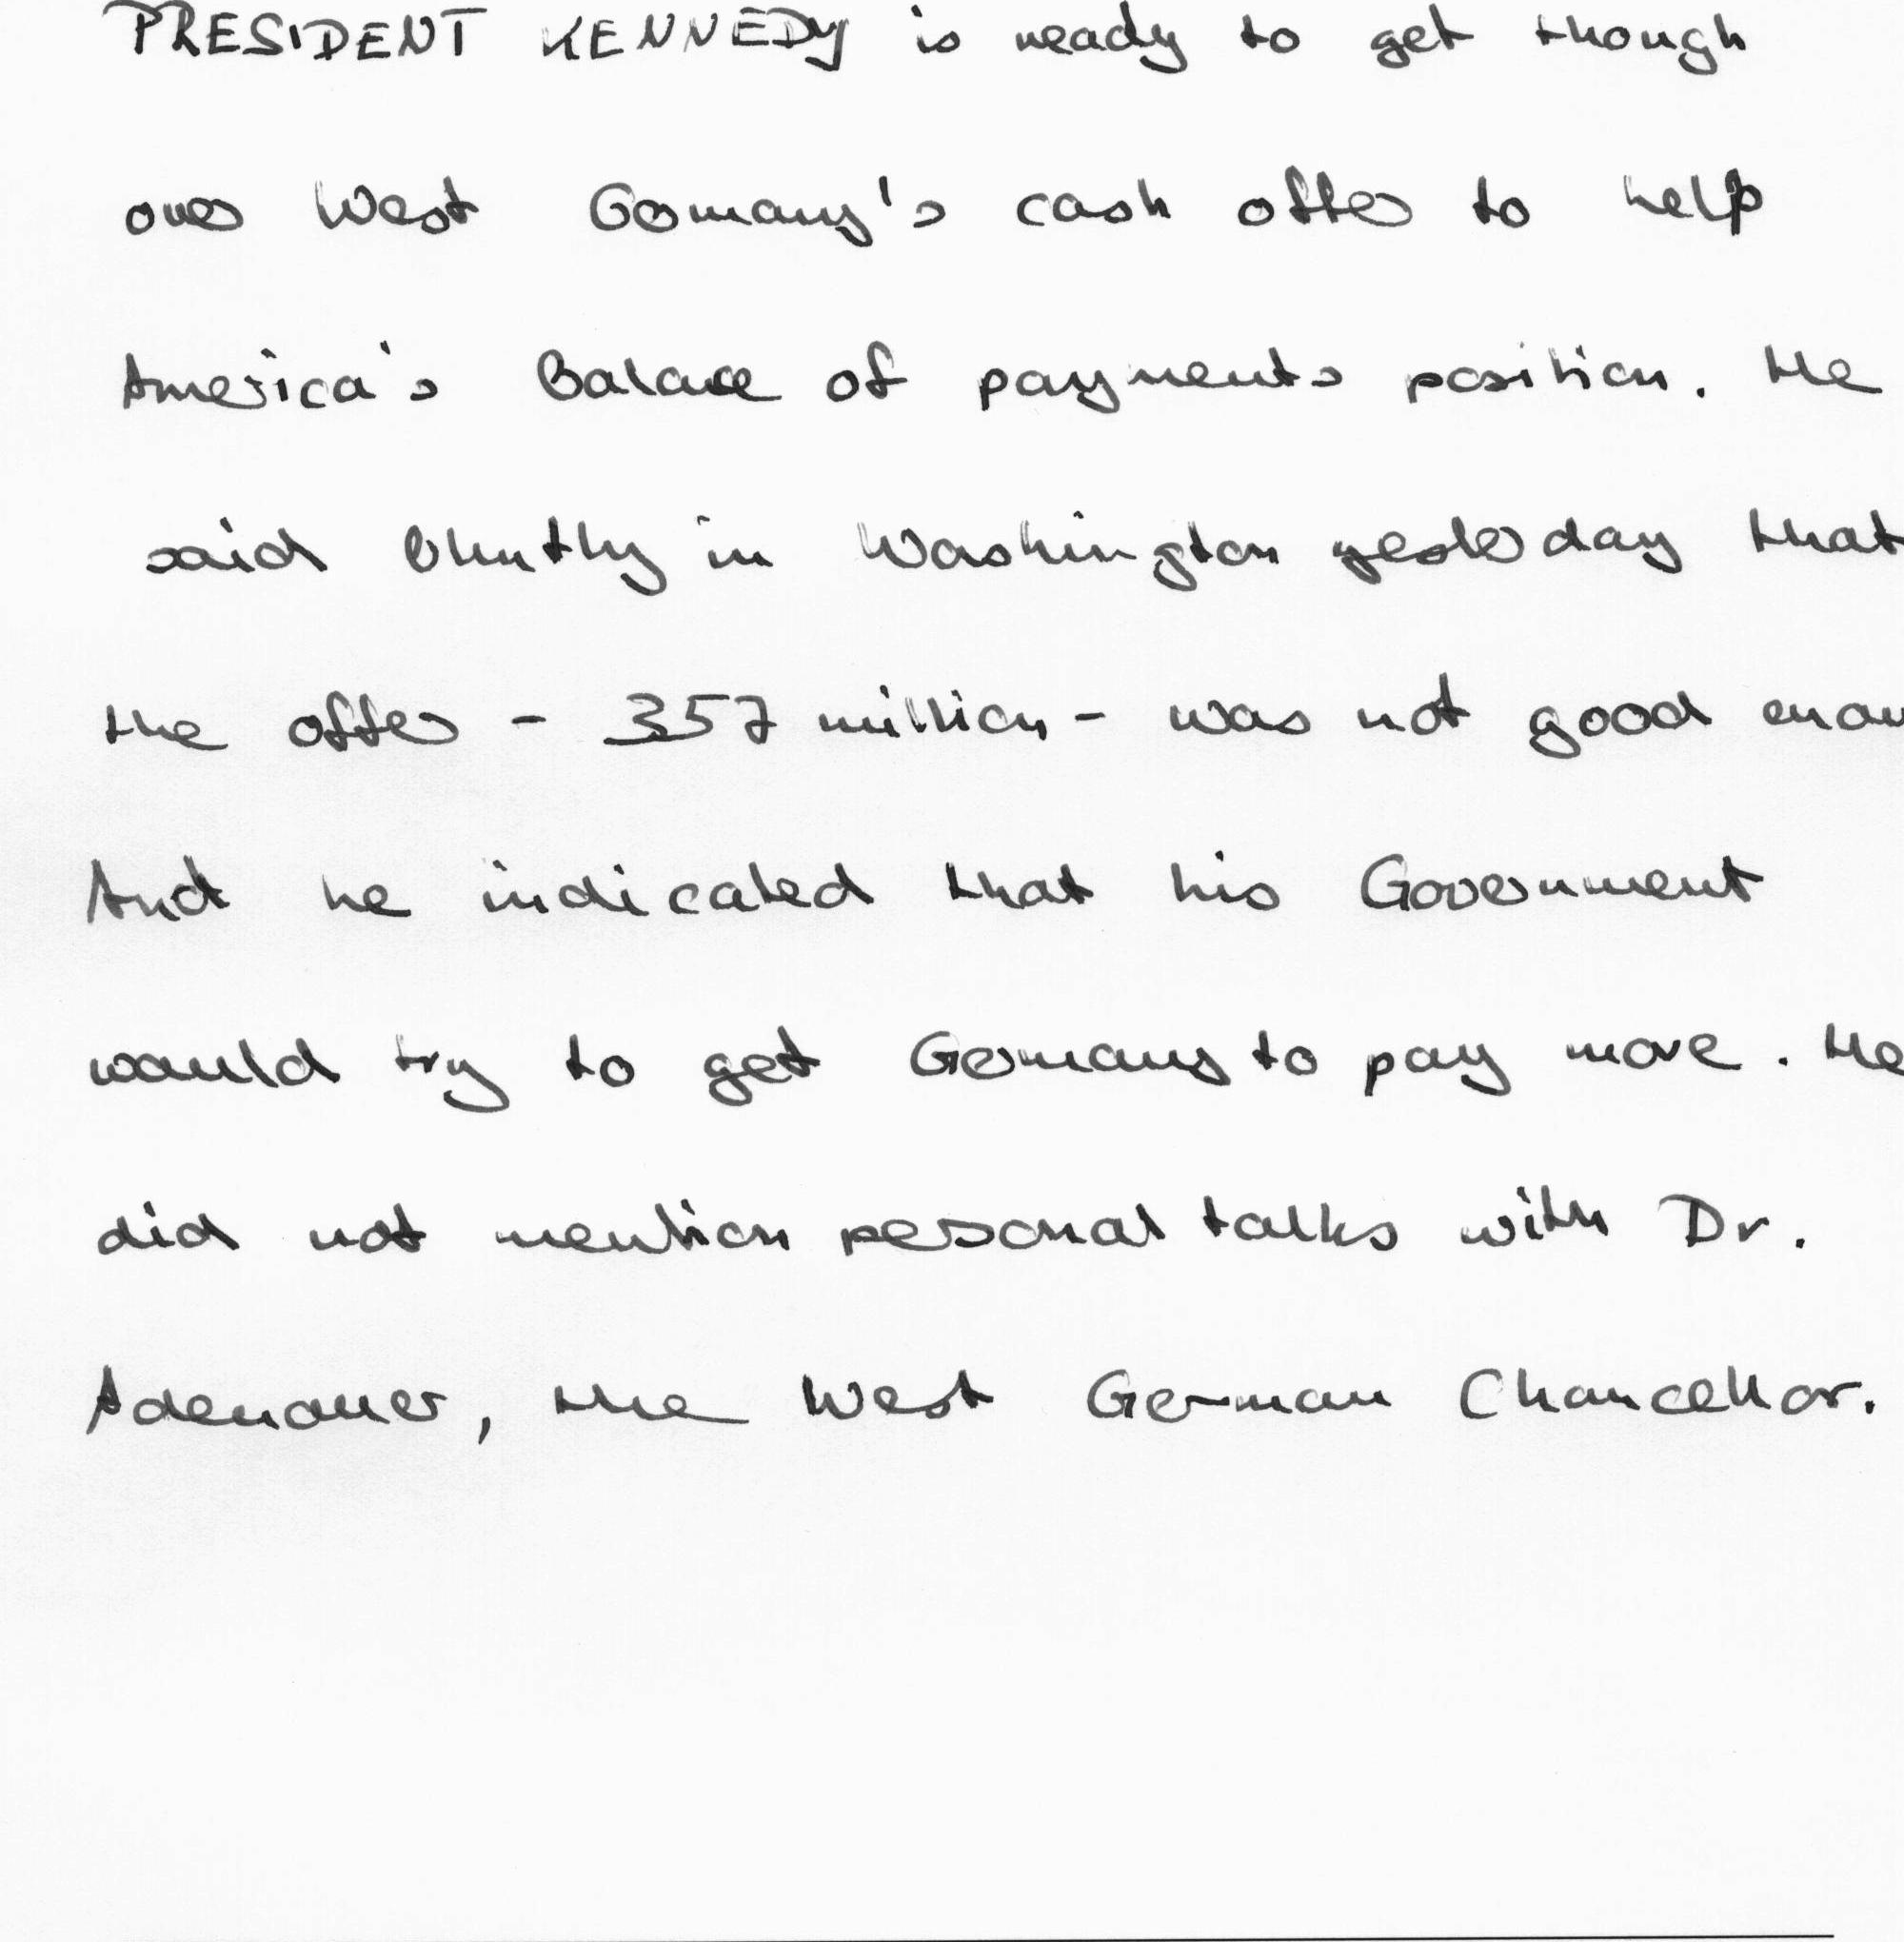 PRESIDENT KENNEDY is ready to get though
over West Germany's cash offer to help
America's Balace of payments position. He
said bluntly in Washington yesterday that
the offer - 357 million - was not good enou
And he indicated that his Government
would try to get Germany to pay more. He
did not mention personal talks with Dr.
Adenauer, the West German Chancellor.